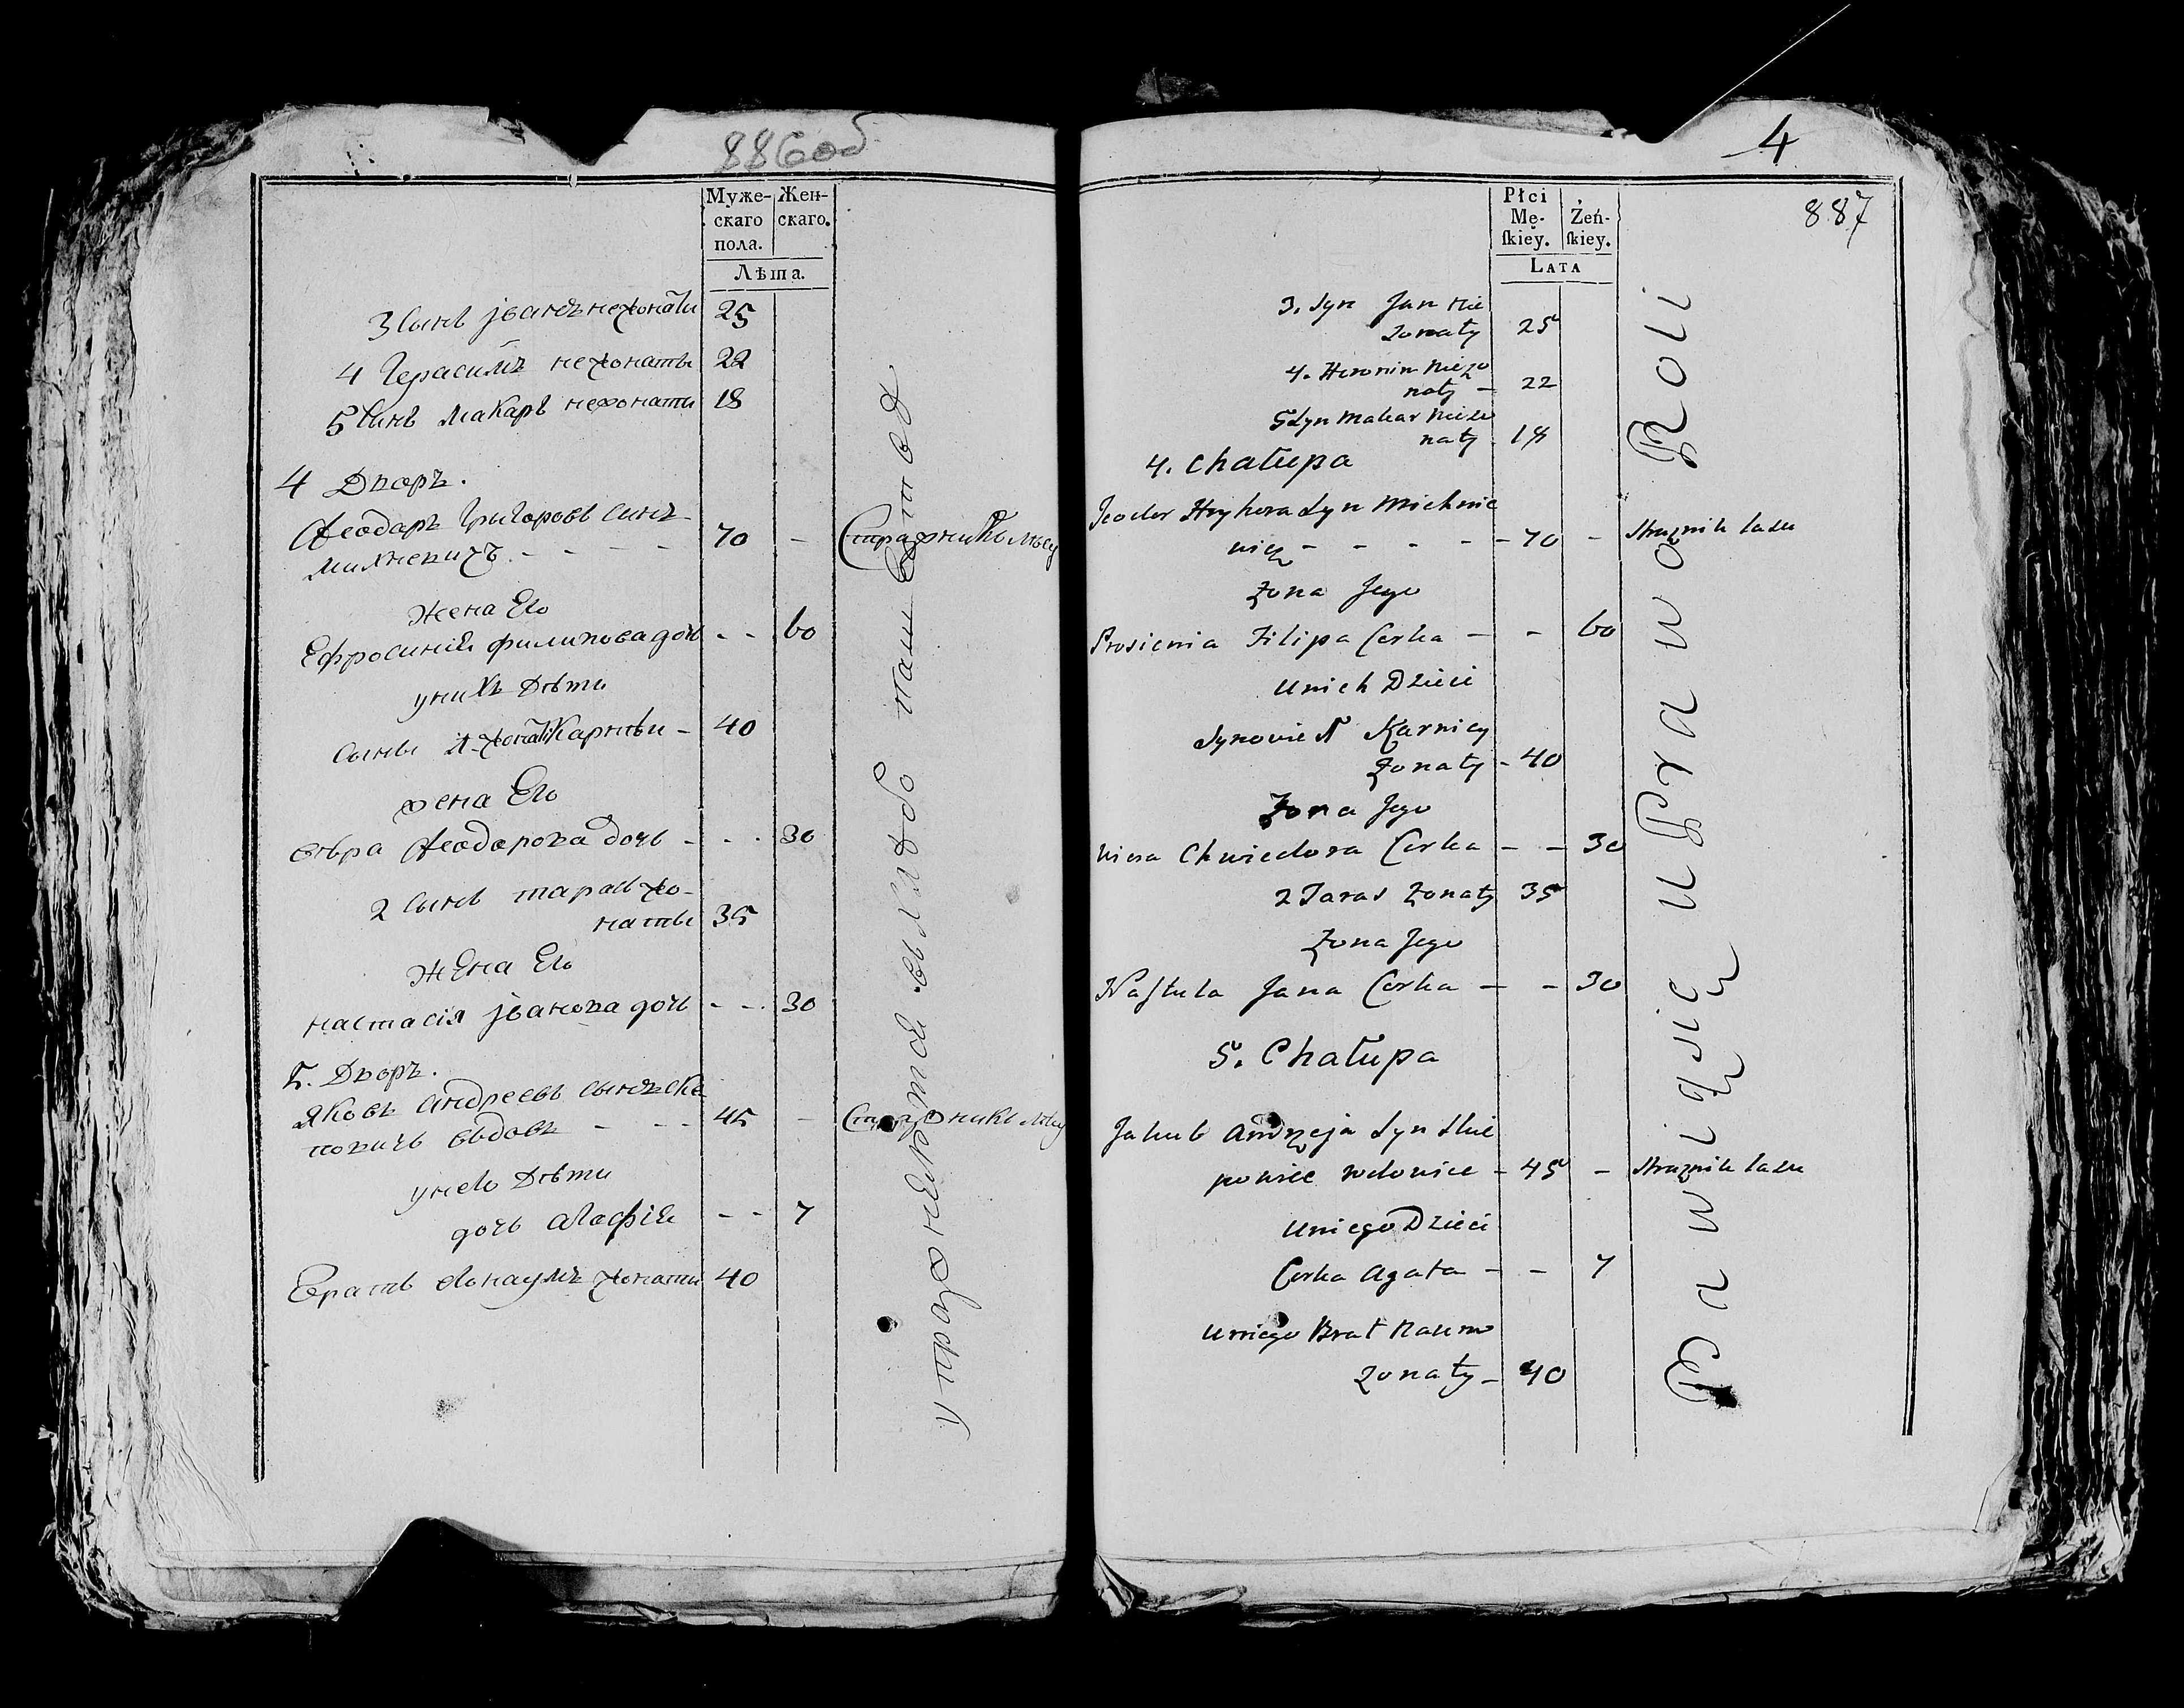 886об
Муже-
скаго
пола.
Жен-
скаго.
Лѣта.
3 сынъ Јванъ нежонаты 25
4 Герасимъ нежонаты 22
5 Сынъ Макаръ нежонаты 18
4 Дворъ.
Феодаръ Григоровъ сынъ
Михневичъ. - - - - 70 - Стражникъ лѣсу
Жена Его
Ефросинія филипова дочь - - 60
уних Дѣти
Сыны 1-жонаты Карнѣи - 40
жена Его
вѣра Феодорова дочь - - - 30
2 сынъ тарасъ жо-
наты 35
жЕна Его
настасія јванова дочь - - - 30
5. Дворъ.
Яковъ андреевъ сынъ Ске
повичъ вдовъ - - - 45 - Стражникъ лѣсу
унего Дѣти
дочь агафія - - 7
братъ наумъ жонаты 40
упражняется вхлѣбопашествѣ
4
887
Płci
Mę-
ſkiey.
Żeń-
ſkiey.
LATA
3. Syn Jan nie
żonaty 25
4. Heronim nieżo
naty - 22
5 Syn Makar nieżo
naty 18
4. Chałupa
Teodor Hryhora Syn Michnie
wicz - - - - - 70 - Strażnik lasu
Żona Jego
Prosienia Filipa Corka - - 60
Unich Dzieci
Synowie 1 Karniey
Żonaty - 40
Żona Jego
Wiera Chwiedora Corka - - 30
2 Taras Żonaty 35
Żona Jego
Naſtula Jana Corka - - 30
5. Chałupa
Jakub Andrzeja Syn Skie
powicz wdowiec - 45 - Strażnik lasu
Uniego Dzieci
Corka Agata - - 7
Uniego Brat Naum
Żonaty - 40
Bawią się uprawą Roli